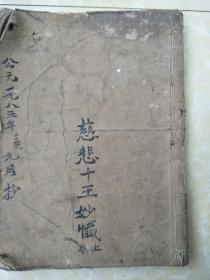 慈悲十王妙懴
上卷
公元一九八三年
九月抄